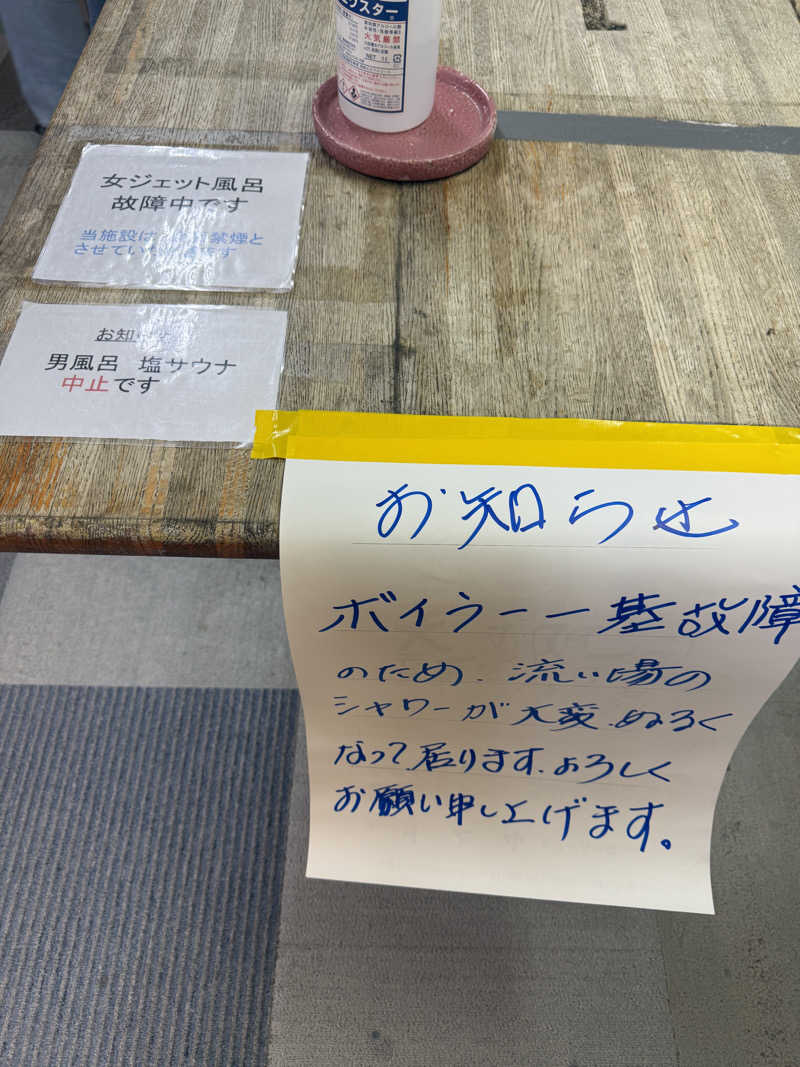 スター
火気厳禁
NET 1L
女ジェット風呂
故障中です
当施設は 禁煙と
させてい す
お知
男風呂 塩サウナ
中止です
お知らせ
ボイラー一基故障
のため、流い場の
シャワーが大変、ぬるく
なって、居ります、よろしく
お願い申し上げます。